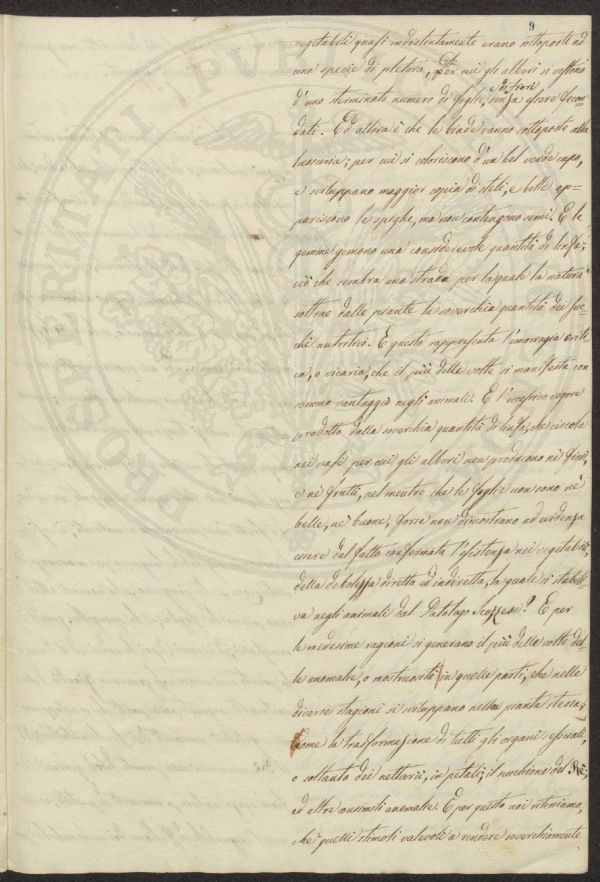 9
vegetabili quasi indistintamente erano sottoposti ad
una specie di pletora, Per cui gli alberi si vestono
di fiori
d'uno sterminato numero di foglie, senza essere fecon=
dati. Ed allora è che le biade vanno sottoposte alla
lussuria; per cui si coloriscono d'un bel verde cupo,
e sviluppano maggior copia di steli; e belle ap=
pariscono le spighe, ma non contengono semi. E le
gemme gemono una considerevole quantità di linfa;
ciò che sembra una strada per la quale la natura
sottrae dalle piante la soverchia quantità dei suc=
chi nutritivi. E questo rappresenta l'emorragia criti
ca, o vicaria, che il più delle volte si manifesta con
sommo vantaggio negli animali. E l'eccessivo vigore
prodotto dalla soverchia quantità di linfa, che circola
nei vasi per cui gli alberi non producono nè fiori,
e nè frutti, nel mentre che le foglie non sono nè
belle, nè buone, forse non dimostrano ad evidenza
essere dal fatto confermata l'esistenza nei vegetabili
della debolezza diretta ed indiretta, la quale si stabili=
va negli animali dal Patologo Scozzese? E per
le medesime ragioni si generano il più delle volte del=
le anomalie, o mostruosità in quelle parti, che nelle
diverse stagioni si sviluppano nella pianta stessa;
come la trasformazione di tutti gli organi sessuali,
o soltanto dei nettarii, in petali; il
ed altre consimili anomalie. E per questo noi riteniamo,
che quelli stimoli valevoli a rendere soverchiamente
PROSPERITATI PVBLICAE